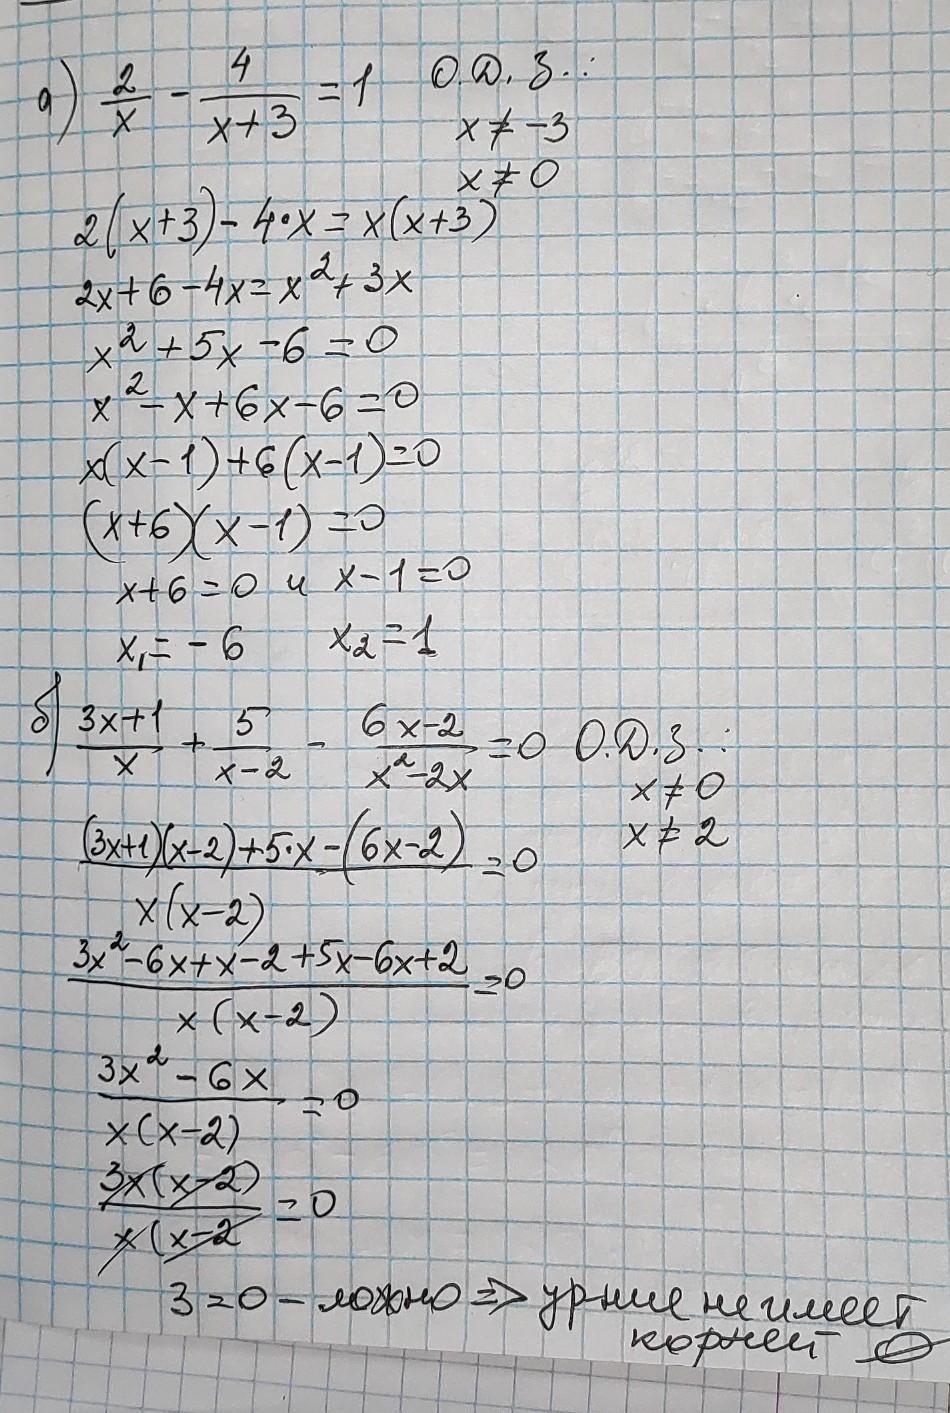 а) 2/x - 4/(x+3) = 1 О.Д.З.:
x ≠ -3
x ≠ 0
2(x+3) - 4·x = x(x+3)
2x+6-4x = x²+3x
x²+5x-6=0
x²-x+6x-6=0
x(x-1)+6(x-1)=0
(x+6)(x-1)=0
x+6=0 и x-1=0
x₁=-6 x₂=1
б) (3x+1)/x + 5/(x-2) - (6x-2)/(x²-2x) = 0 О.Д.З.:
x ≠ 0
x ≠ 2
((3x+1)(x-2)+5·x-(6x-2))/(x(x-2)) = 0
(3x²-6x+x-2+5x-6x+2)/(x(x-2)) = 0
(3x²-6x)/(x(x-2)) = 0
(3x(x-2))/(x(x-2) = 0
3=0 - ложно => ур-ние не имеет
корней ∅